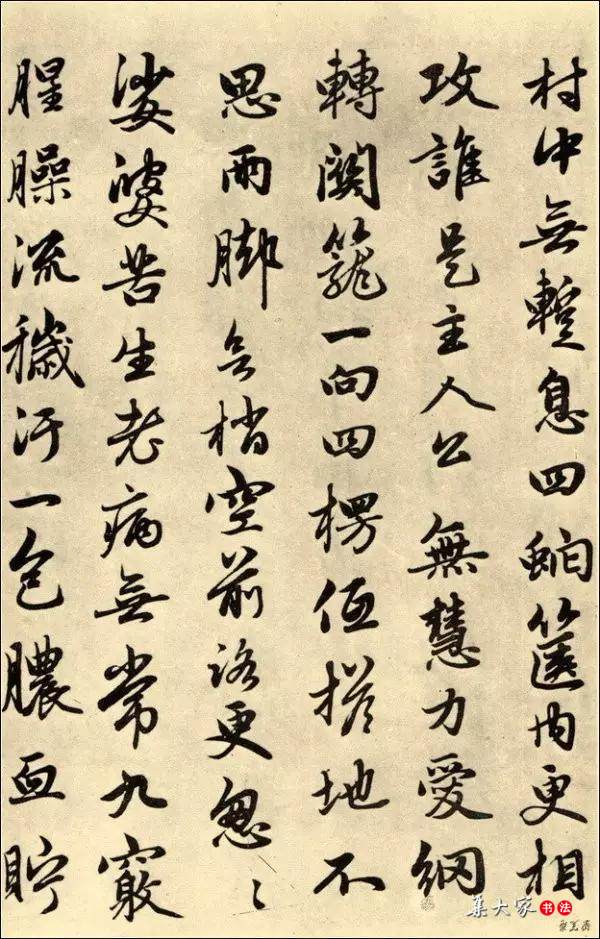 村中無暫息四虵篋內更相
攻誰是主人公 無慧力愛網
轉關籠一向四楞但搭地不
思兩脚無梢空前路更怱〻
娑婆苦生老病無常九竅
腥臊流穢汙一包膿血貯
集大家书法